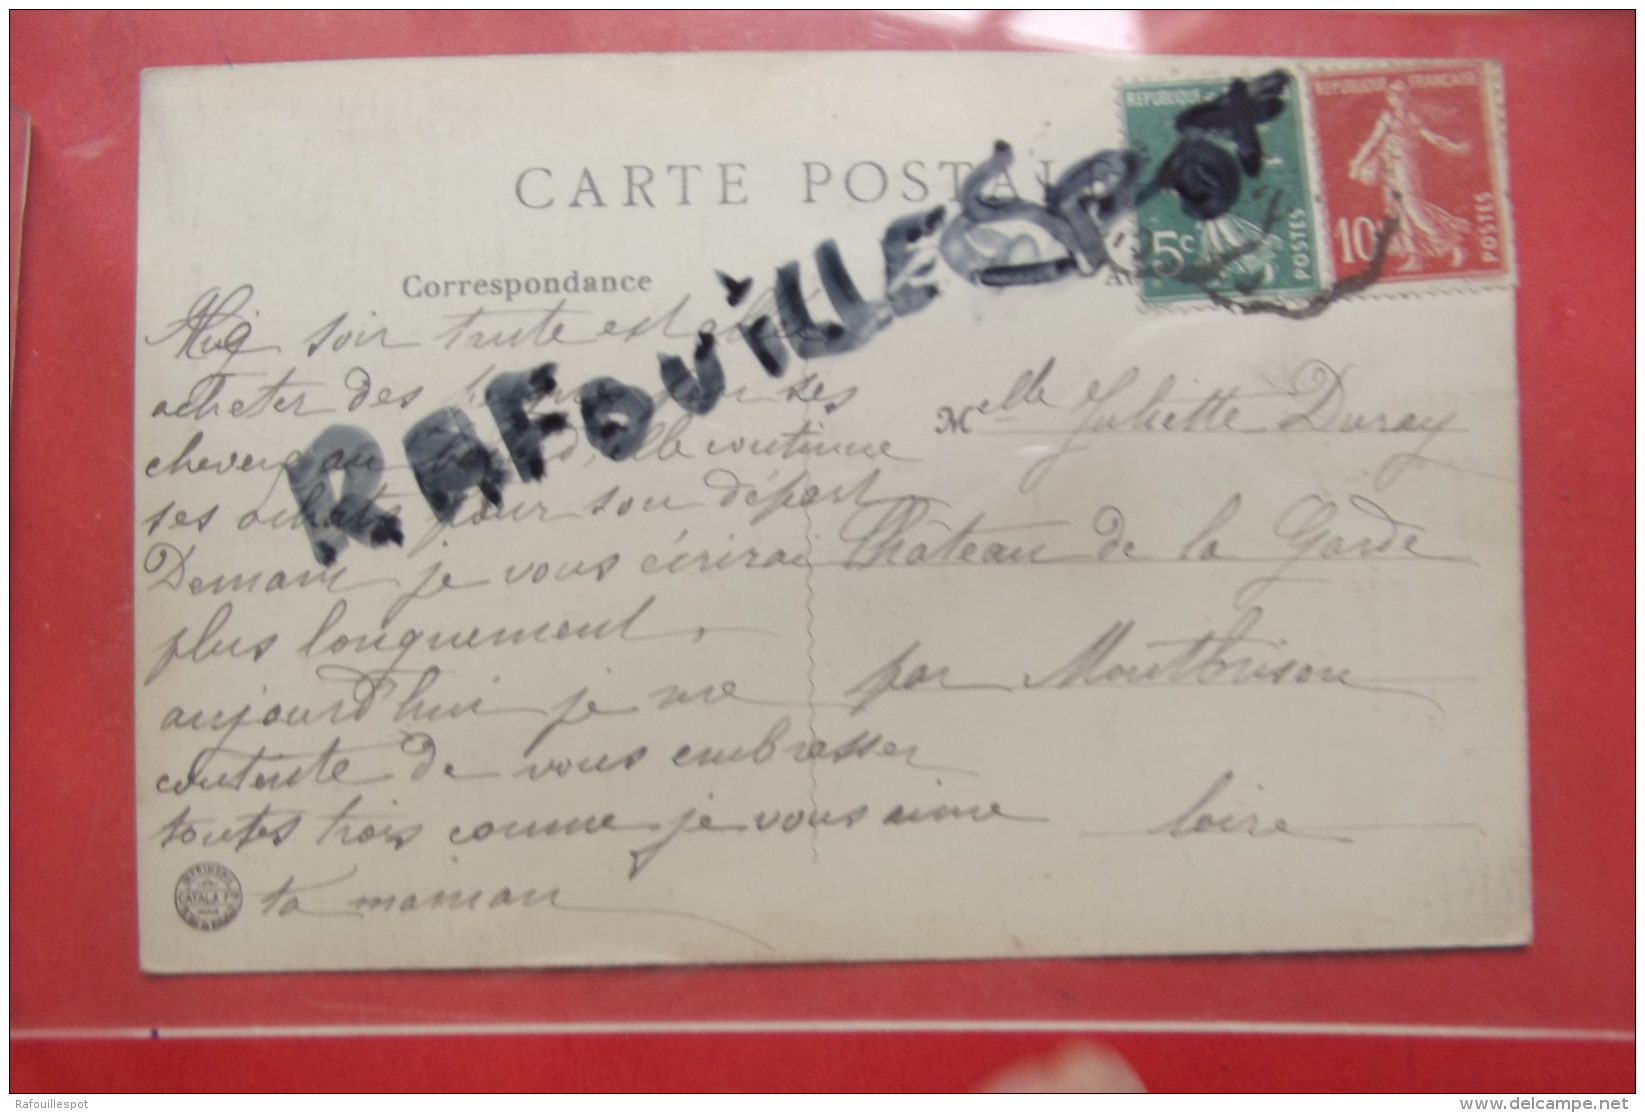 CARTE POSTALE
RAFOUILLESPOT
REPUBLIQUE
5c
POSTES
REPUBLIQUE FRANÇAISE
10
POSTES
Correspondance
soir tante est
acheter des ses
au elle continue
ses achats pour son départ
Demain je vous écrirai
plus longuement,
aujourd'hui je me
contente de vous embrasser
toutes trois comme je vous aime
ta maman
Melle Juliette Duray
Château de la Garde
par Montbrison
Loire
IMPRIMERIE
CATALA
Rafouillespot
www.delcampe.net